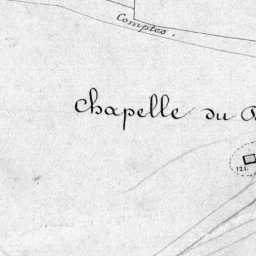 Comptes.
chapelle du
121.